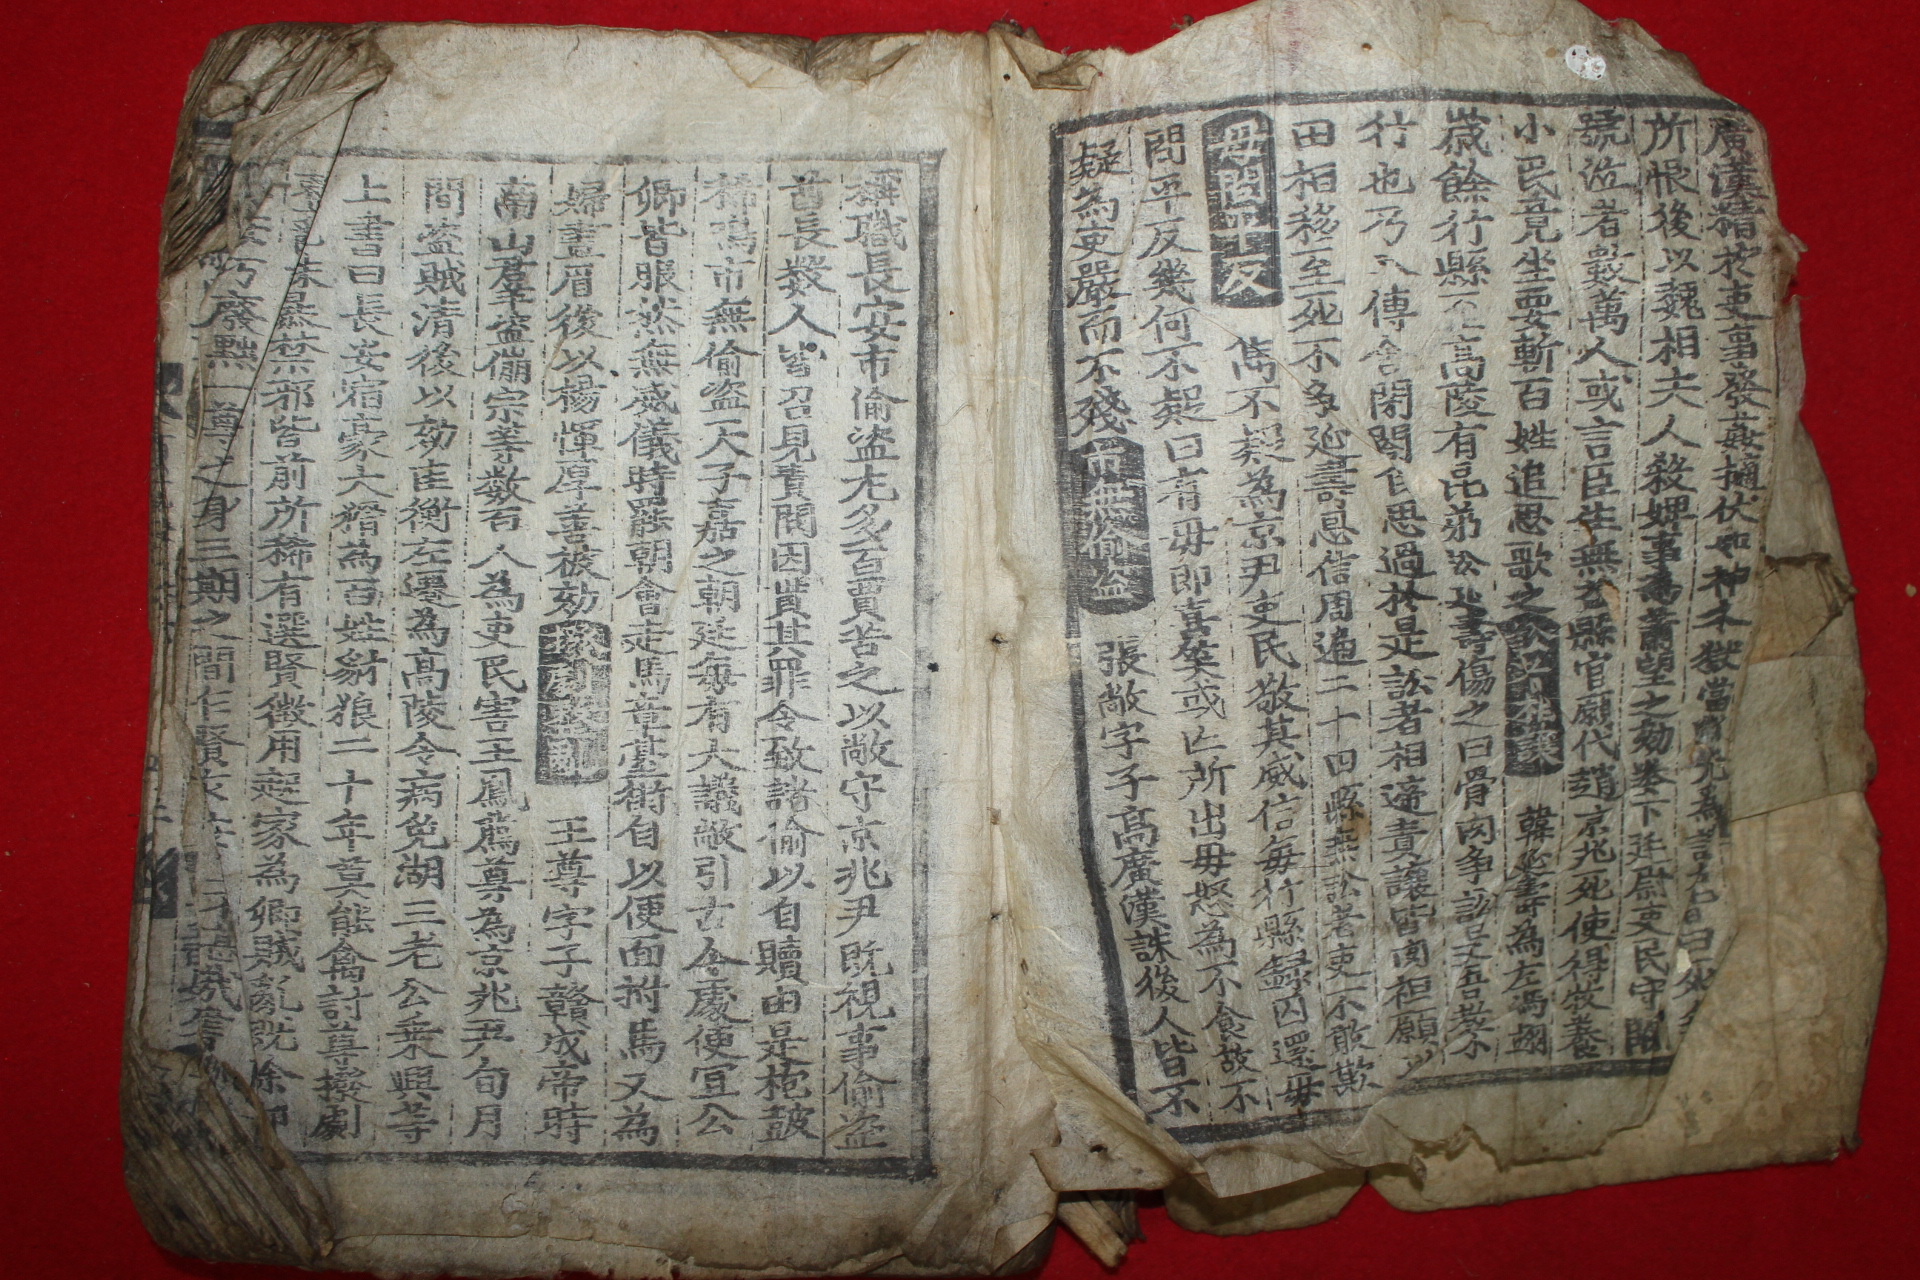 廣漢精於吏事發姦擿伏如神
所恨後以魏相夫人殺婢事為蕭望之劾奏下廷尉吏民守闕
號泣者數萬人或言臣生無益縣官願代趙京兆死使得牧養
小民竟坐要斬百姓追思歌之 韓延壽為左馮翊
歲餘行縣至高陵有昆弟訟延壽傷之曰骨肉爭訟
行也乃入傳舍閉閤自思過於是訟者相讓皆肉袒願以
田相移至死不爭延壽恩信周遍二十四縣無訟者吏不敢欺
母問平反 雋不疑為京尹吏民敬其威信每行縣錄囚還毋
問平反幾何不疑曰言毋即喜笑或亡所出毋怒為不食故不
疑為吏嚴而不殘 市無偷盗 張敞字子高廣漢誅後人皆不
稱職長安市偷盗尤多百賈苦之以敞守京兆尹既視事偷盗
酋長數人皆召見責問因貰其罪令致諸偷以自贖由是枹鼓
稀鳴市無偷盗天子嘉之朝廷每有大議敞引古今處便宜公
卿皆服然無威儀時罷朝會走馬章臺街自以便面拊馬又為
婦畫眉後以楊惲厚善被劾 王尊字子贛成帝時
南山羣盗傰宗等数百人為吏民害王鳳薦尊為京兆尹旬月
間盗賊清後以劾匡衡左遷為高陵令病免湖三老公乘興等
上書曰長安宿豪大猾為百姓豺狼二十年莫能禽討尊撥劇
誅暴禁邪皆前所稀有選賢徵用起家為卿賊亂既除
廢黜一尊之身三期之間乍賢乍